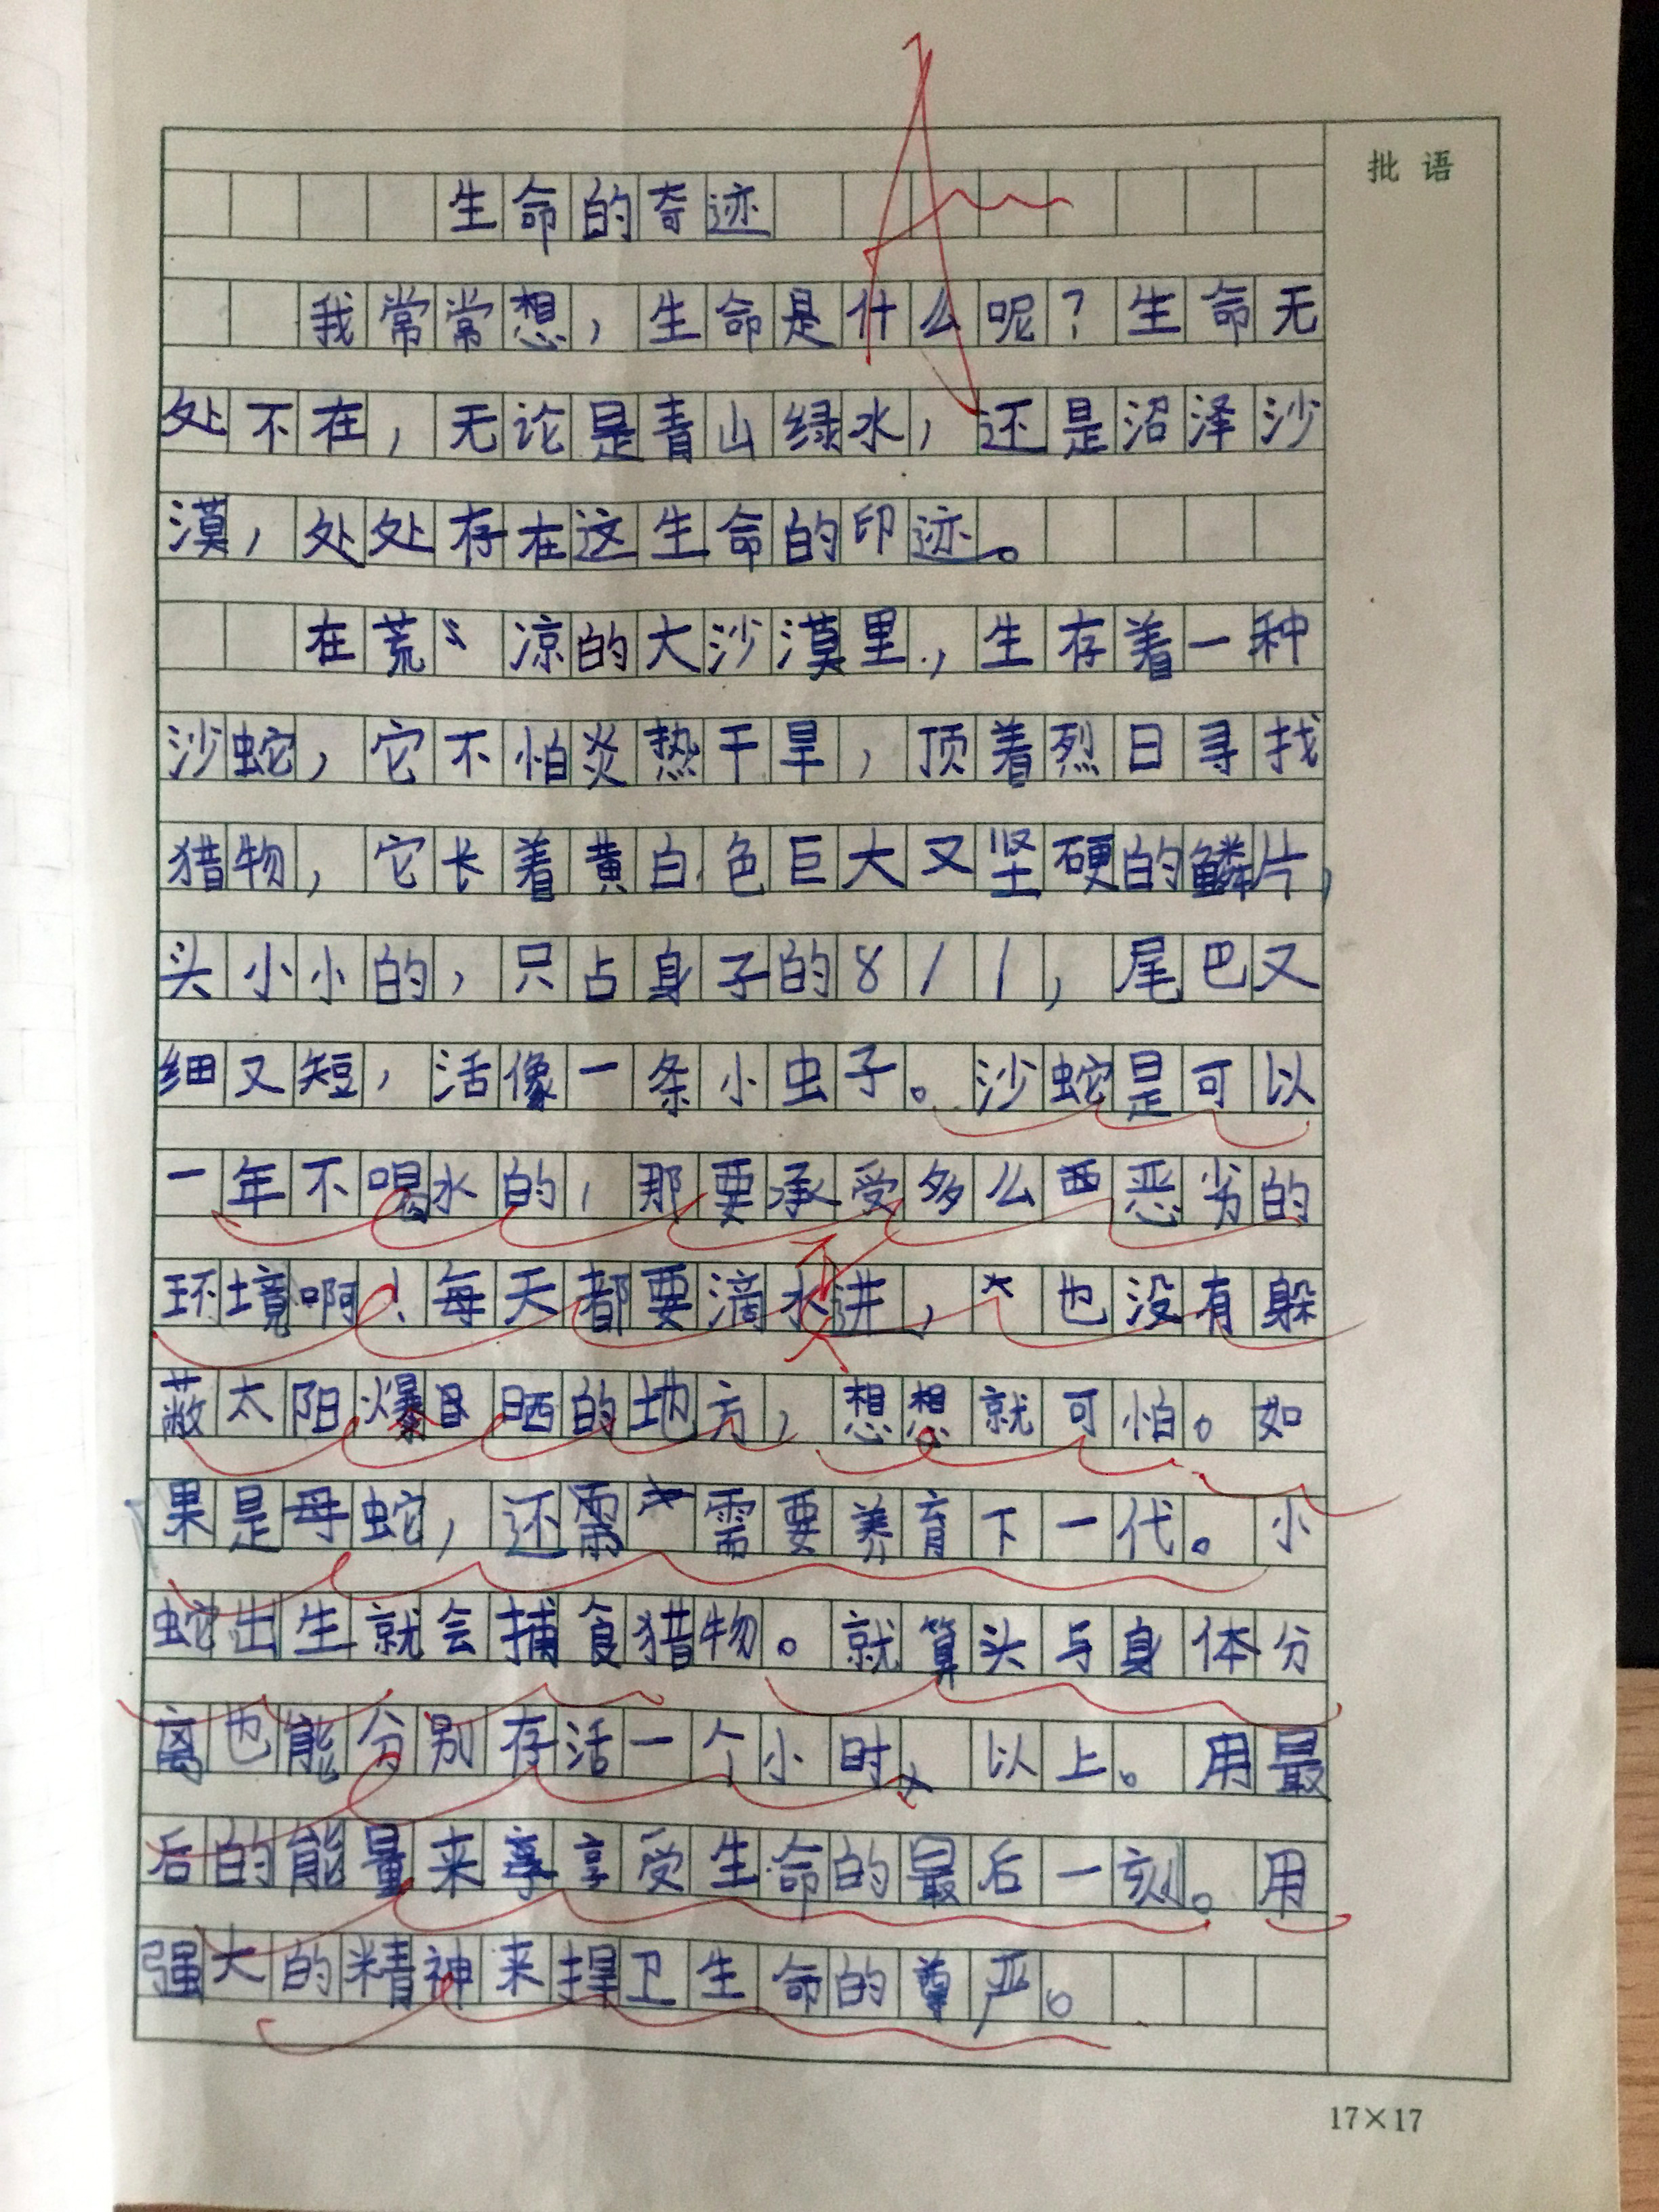 批语
生命的奇迹
我常常想，生命是什么呢？生命无
处不在，无论是青山绿水，还是沼泽沙
漠，处处存在这生命的印迹。
在荒凉的大沙漠里，生存着一种
沙蛇，它不怕炎热干旱，顶着烈日寻找
猎物，它长着黄白色巨大又坚硬的鳞片，
头小小的，只占身子的8/1，尾巴又
细又短，活像一条小虫子。沙蛇是可以
一年不喝水的，那要承受多么恶劣的
环境啊！每天都要滴水进，也没有躲
蔽太阳爆晒的地方，想想就可怕。如
果是母蛇，还需要养育下一代。小
蛇出生就会捕食猎物。就算头与身体分
离也能分别存活一个小时以上。用最
后的能量来享受生命的最后一刻。用
强大的精神来捍卫生命的尊严。
17×17